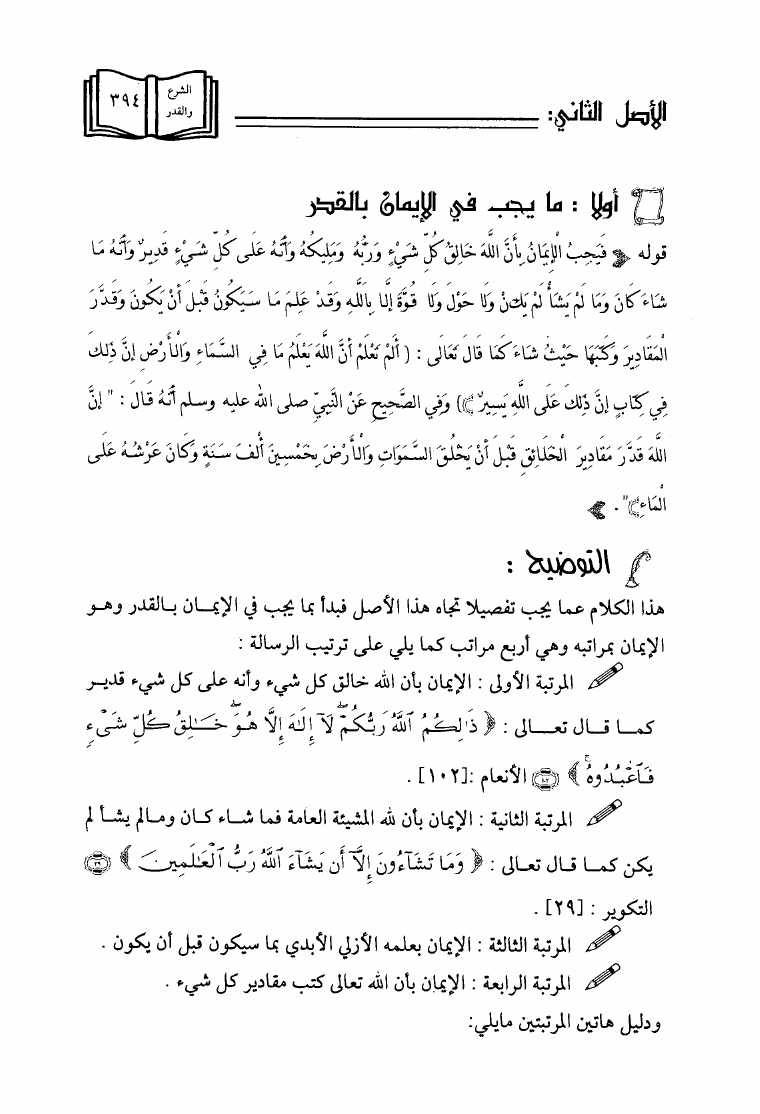 الأصل الثاني:
الشرع
والقدر
٣٩٤
أولا : ما يجب في الإيمان بالقدر
قوله ﴿ فَيَجِبُ الْإِيمَانُ بِأَنَّ اللَّهَ خَالِقُ كُلِّ شَيْءٍ وَرَبُّهُ وَمَلِيكُهُ وَأَنَّهُ عَلَى كُلِّ شَيْءٍ قَدِيرٌ وَأَنَّهُ مَا
شَاءَ كَانَ وَمَا لَمْ يَشَأْ لَمْ يَكُنْ وَلَا حَوْلَ وَلَا قُوَّةَ إلَّا بِاَللَّهِ وَقَدْ عَلِمَ مَا سَيَكُونُ قَبْلَ أَنْ يَكُونَ وَقَدَّرَ
الْمَقَادِيرَ وَكَتَبَهَا حَيْثُ شَاءَ كَمَا قَالَ تَعَالَى : ( أَلَمْ تَعْلَمْ أَنَّ اللَّهَ يَعْلَمُ مَا فِي السَّمَاءِ وَالْأَرْضِ إنَّ ذَلِكَ
فِي كِتَابٍ إنَّ ذَلِكَ عَلَى اللَّهِ يَسِيرٌ ﴾) وَفِي الصَّحِيحِ عَنْ النَّبِيِّ صلى الله عليه وسلم أَنَّهُ قَالَ : " إنَّ
اللَّهَ قَدَّرَ مَقَادِيرَ الْخَلَائِقِ قَبْلَ أَنْ يَخْلُقَ السَّمَوَاتِ وَالْأَرْضَ بِخَمْسِينَ أَلْفَ سَنَةٍ وَكَانَ عَرْشُهُ عَلَى
الْمَاءِ ﴾" . ﴾
التوضيح :
هذا الكلام عما يجب تفصيلا تجاه هذا الأصل فبدأ بما يجب في الإيمـان بـالقدر وهـو
الإيمان بمراتبه وهي أربع مراتب كما يلي على ترتيب الرسالة :
المرتبة الأولى : الإيمان بأن الله خالق كل شيء وأنه على كل شيء قديـر
كمـا قـال تعـالى : ﴿ ذَٰلِكُمُ ٱللَّهُ رَبُّكُمْ ۖ لَآ إِلَـٰهَ إِلَّا هُوَ ۖ خَـٰلِقُ كُلِّ شَىْءٍ
فَٱعْبُدُوهُ ۚ ﴾ ۝١٠٢ الأنعام :[١٠٢] .
المرتبة الثانية : الإيمان بأن لله المشيئة العامة فما شـاء كـان ومـالم يشـأ لم
يكن كمـا قـال تعـالى : ﴿ وَمَا تَشَآءُونَ إِلَّآ أَن يَشَآءَ ٱللَّهُ رَبُّ ٱلْعَـٰلَمِينَ ﴾ ۝٢٩
التكوير : [٢٩] .
المرتبة الثالثة : الإيمان بعلمه الأزلي الأبدي بما سيكون قبل أن يكون .
المرتبة الرابعة : الإيمان بأن الله تعالى كتب مقادير كل شيء .
ودليل هاتين المرتبتين مايلي: